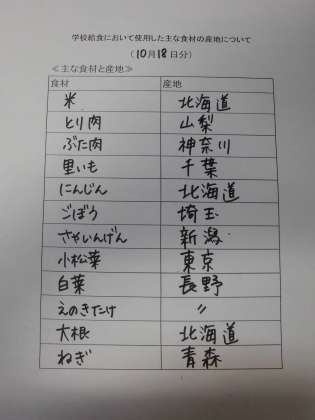 学校給食において使用した主な食材の産地について
(10月18日分)
≪主な食材と産地≫
食材 産地
米 北海道
とり肉 山梨
ぶた肉 神奈川
里いも 千葉
にんじん 北海道
ごぼう 埼玉
さやいんげん 新潟
小松菜 東京
白菜 長野
えのきたけ 〃
大根 北海道
ねぎ 青森